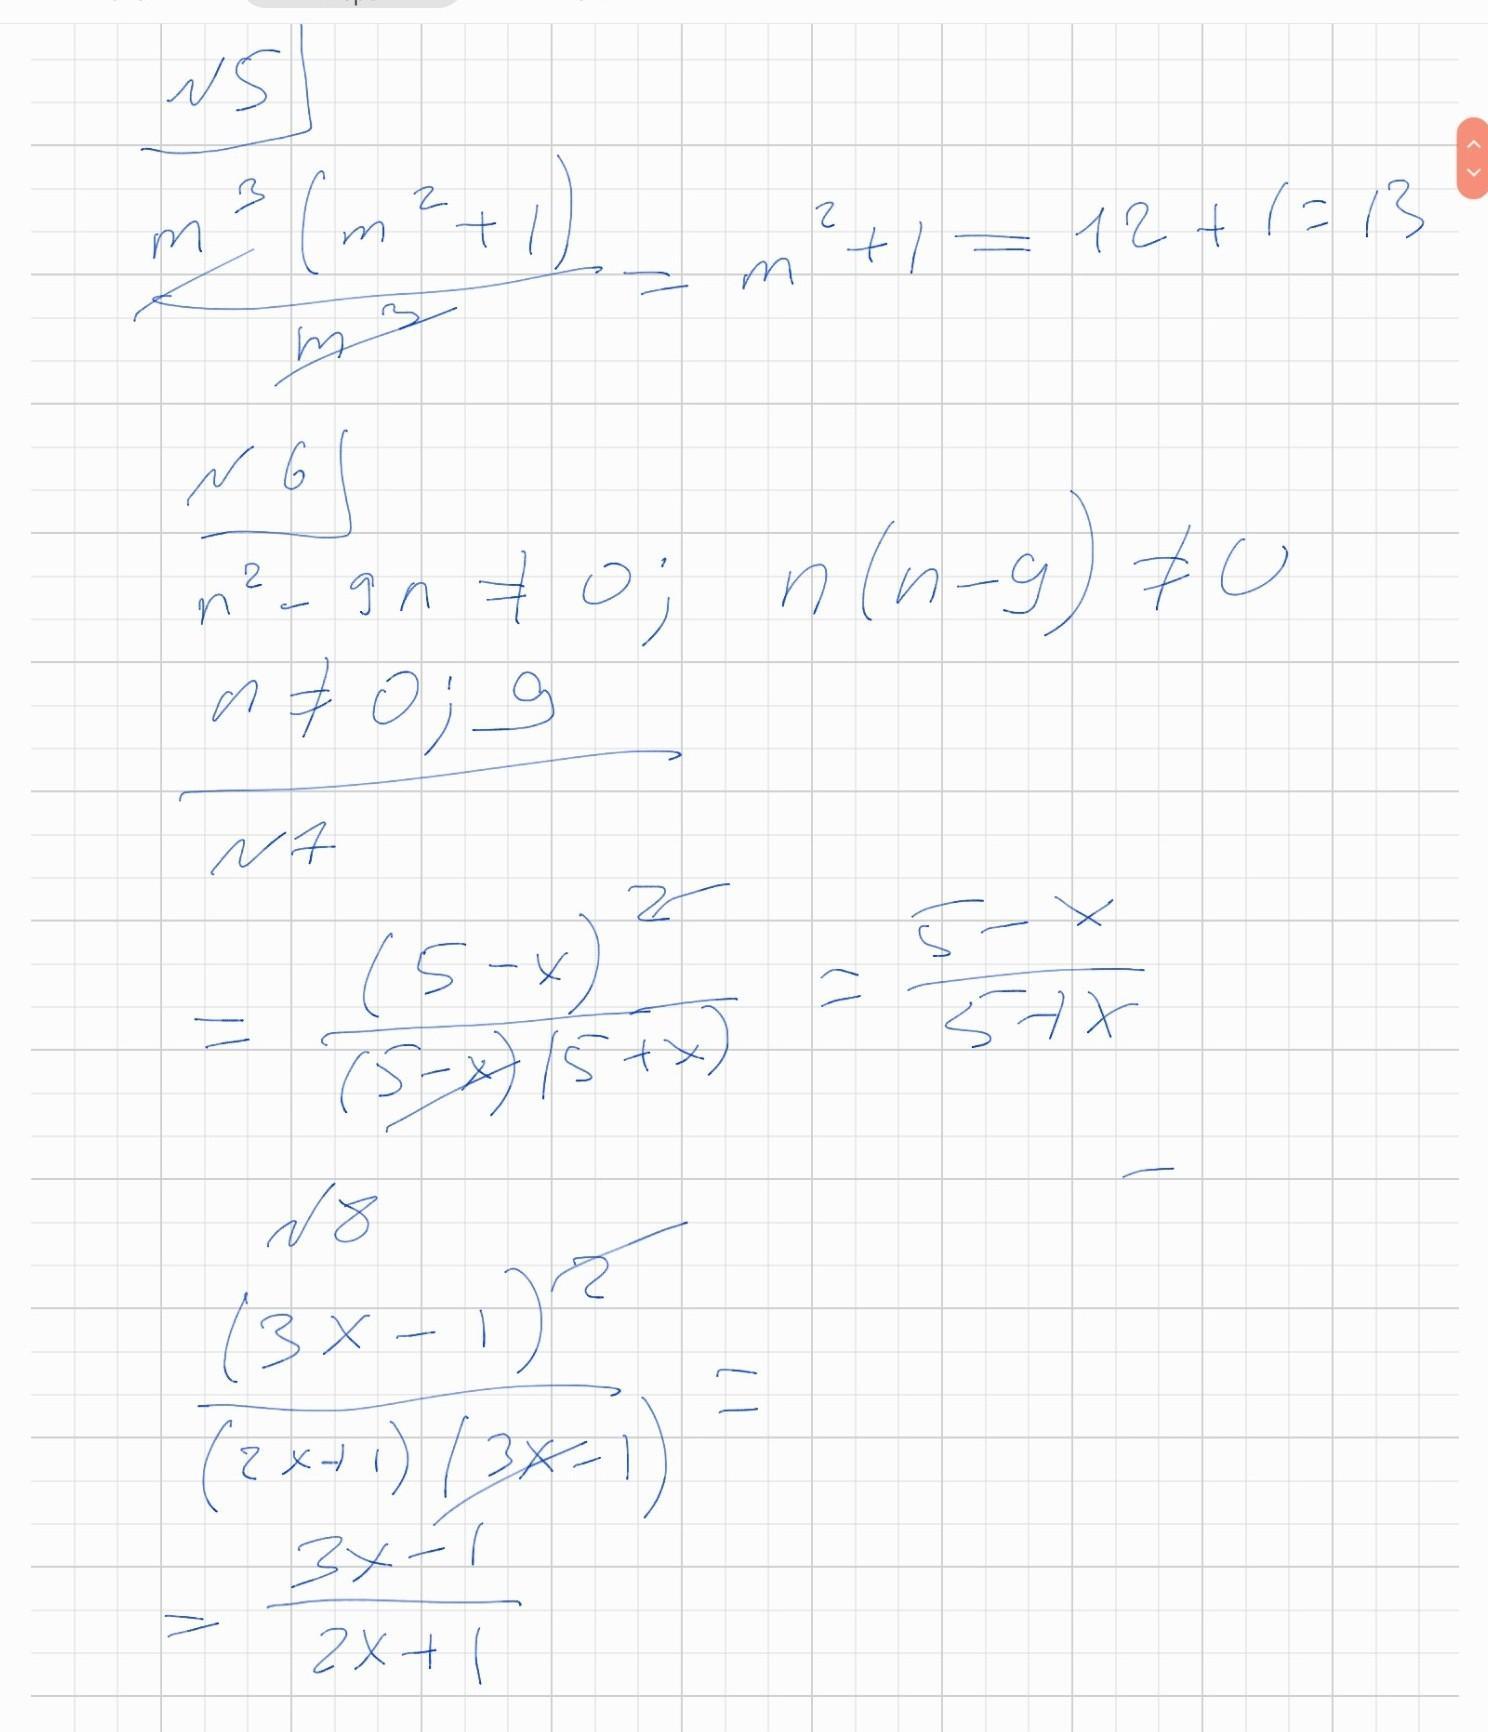 N5
m³(m²+1)/m³ = m²+1 = 12+1=13
N6
n² - 9n ≠ 0; n(n-9) ≠ 0
n ≠ 0; 9
N7
= (5-x)²/((5-x)(5+x)) = (5-x)/(5+x)
N8
(3x-1)²/((2x+1)(3x-1)) =
= (3x-1)/(2x+1)